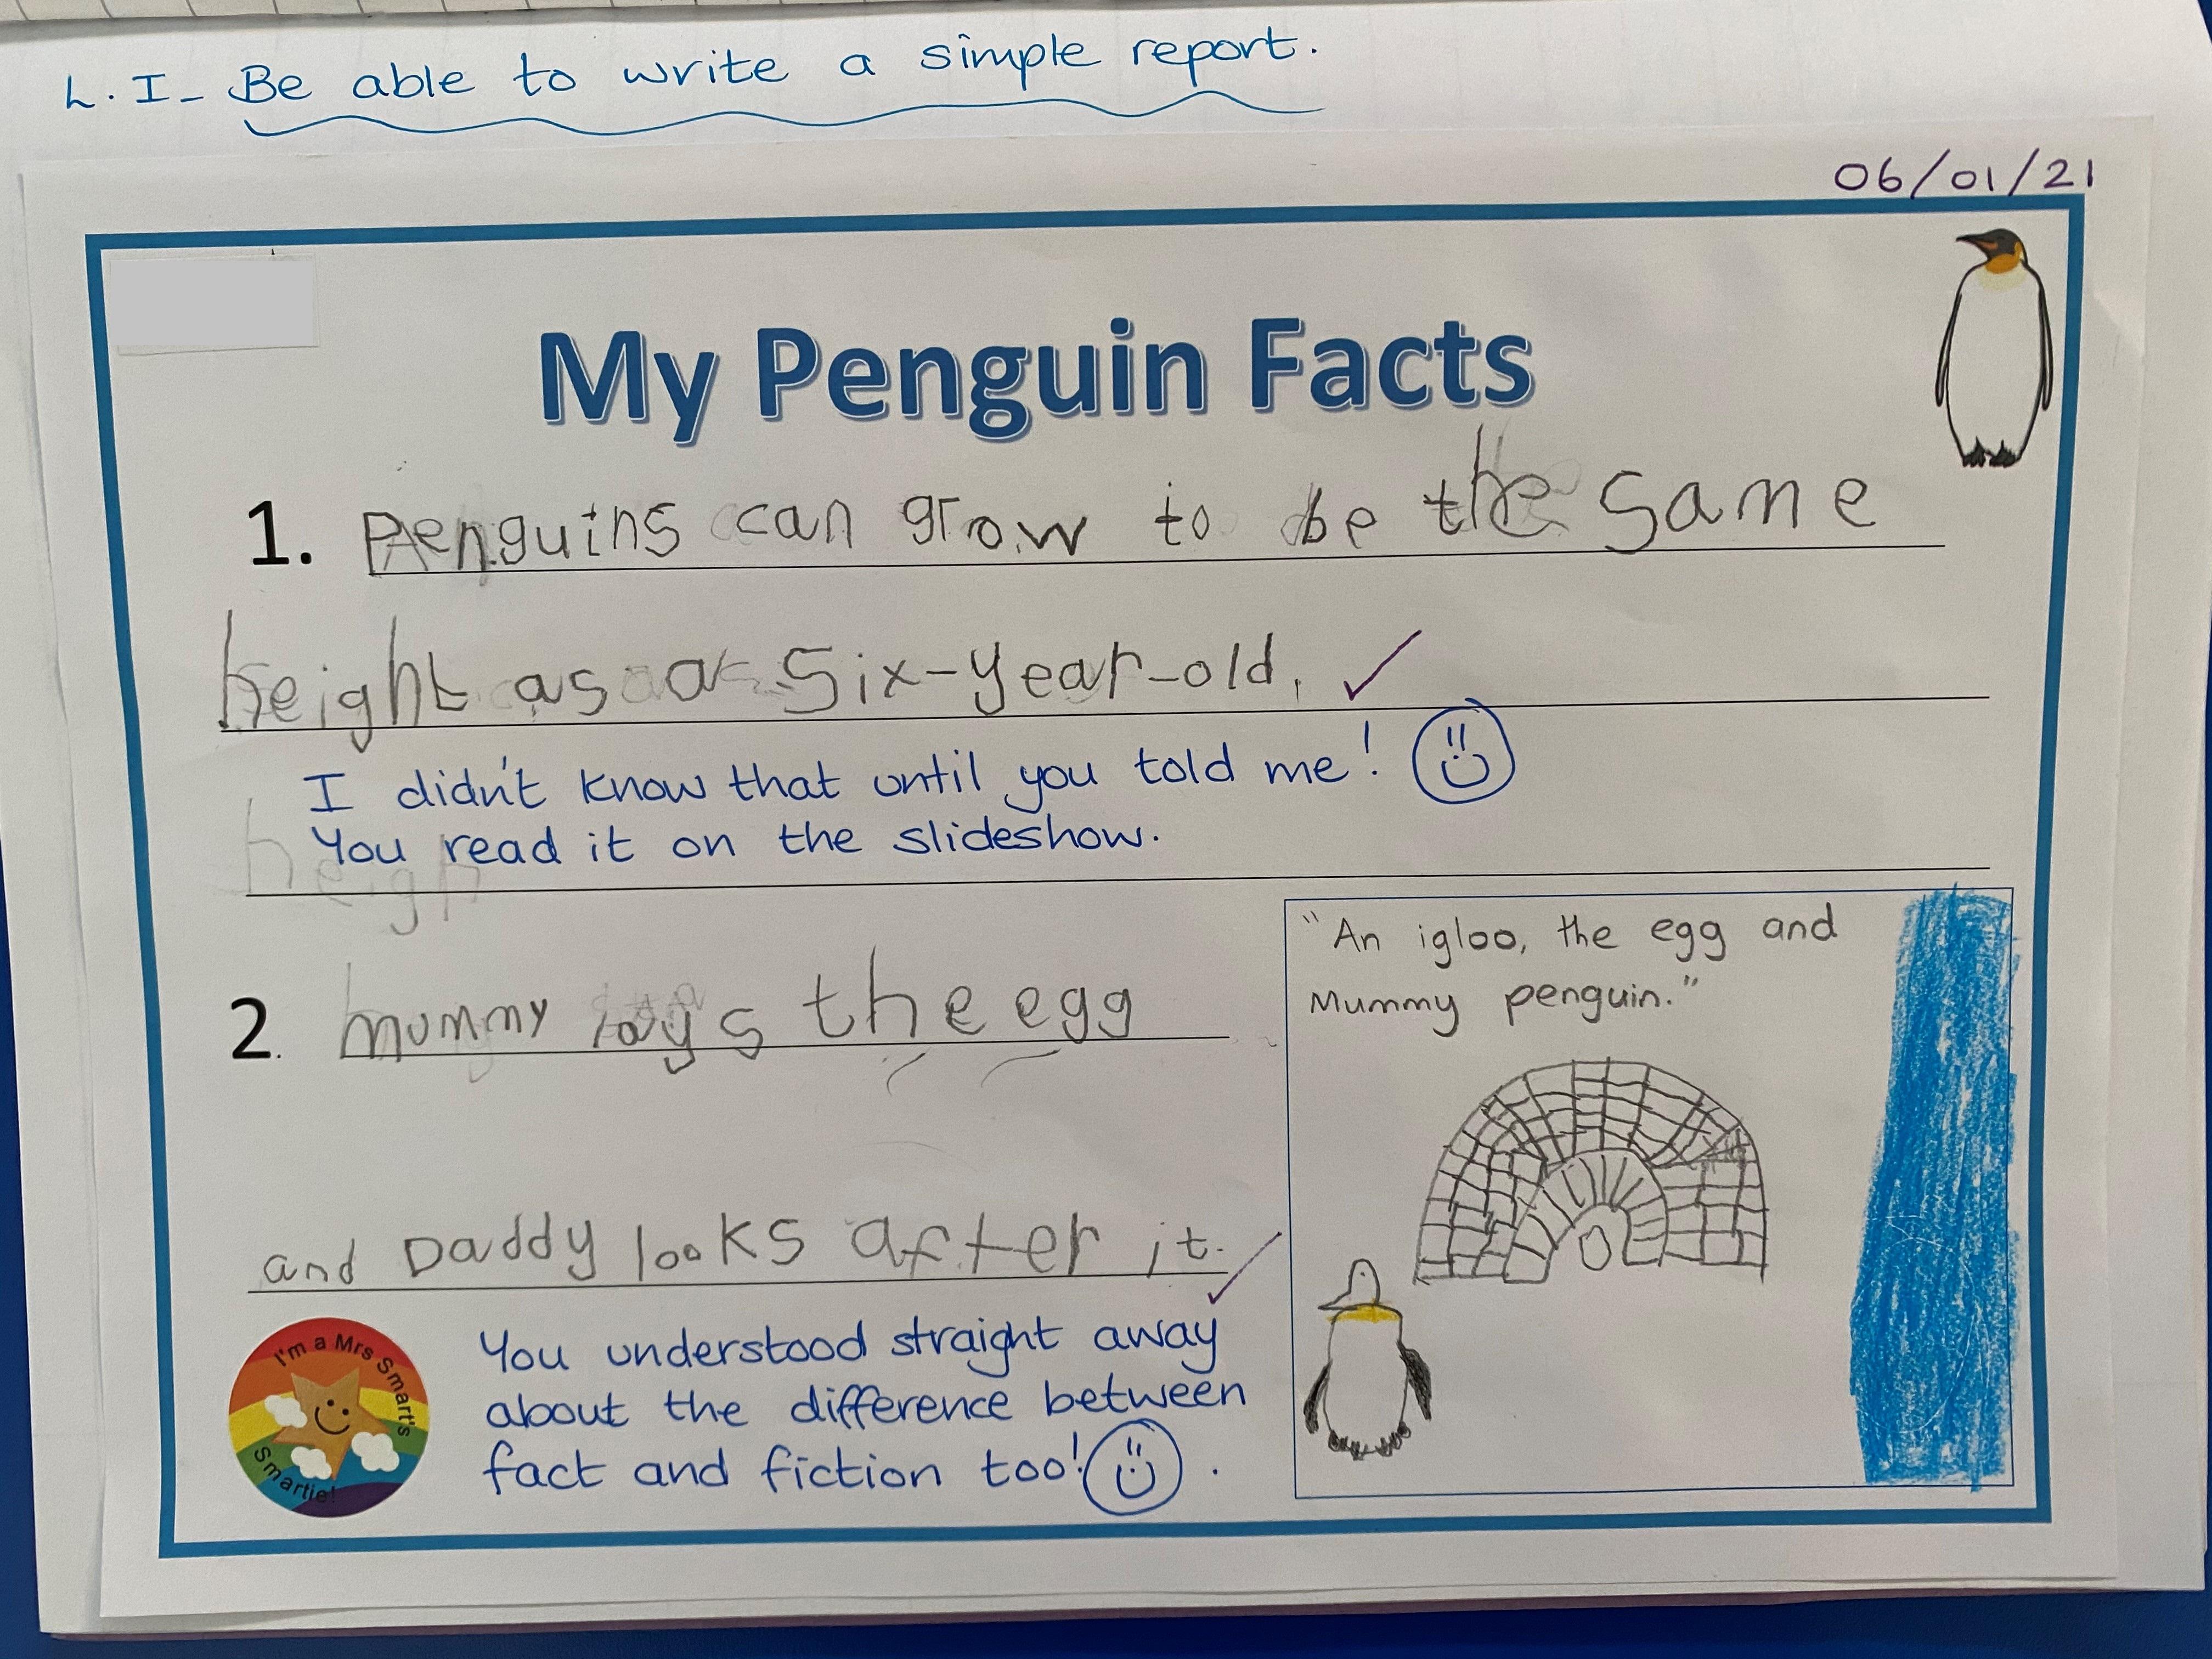 L.I- Be able to write a simple report.
06/01/21
My Penguin Facts
1. Penguins can grow to be the same
height as a Six-year-old.
I didn't know that until you told me!
You read it on the slideshow.
heigh
2. mummy lays the egg
and Daddy looks after it.
"An igloo, the egg and
Mummy penguin."
I'm a Mrs Smart's
Smartie!
You understood straight away
about the difference between
fact and fiction too!